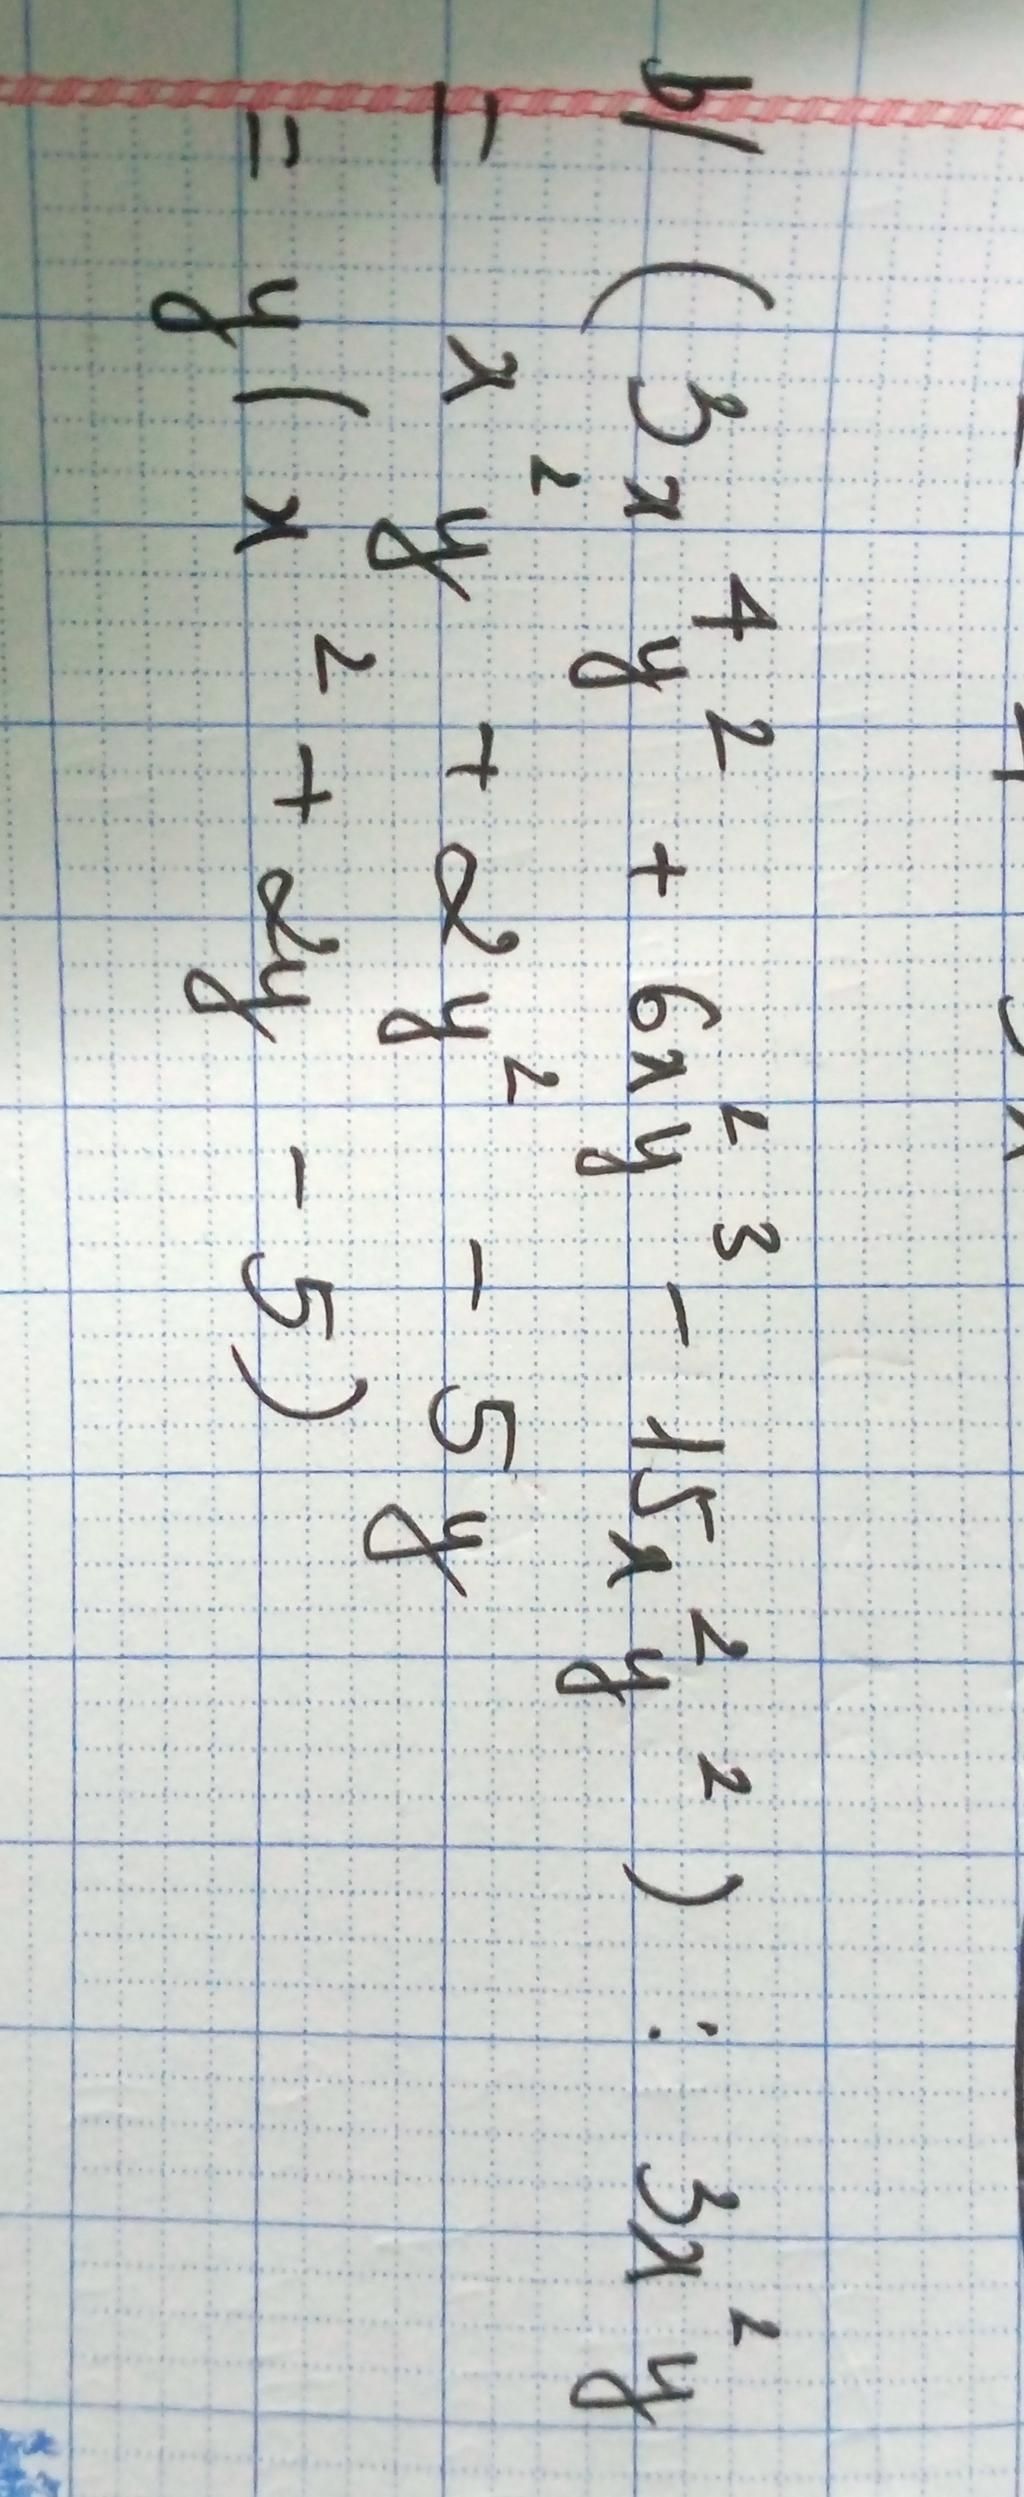 b/ (3x⁴y² + 6x²y³ - 15x²y²) : 3x²y
= x²y + 2y² - 5y
= y(x² + 2y - 5)